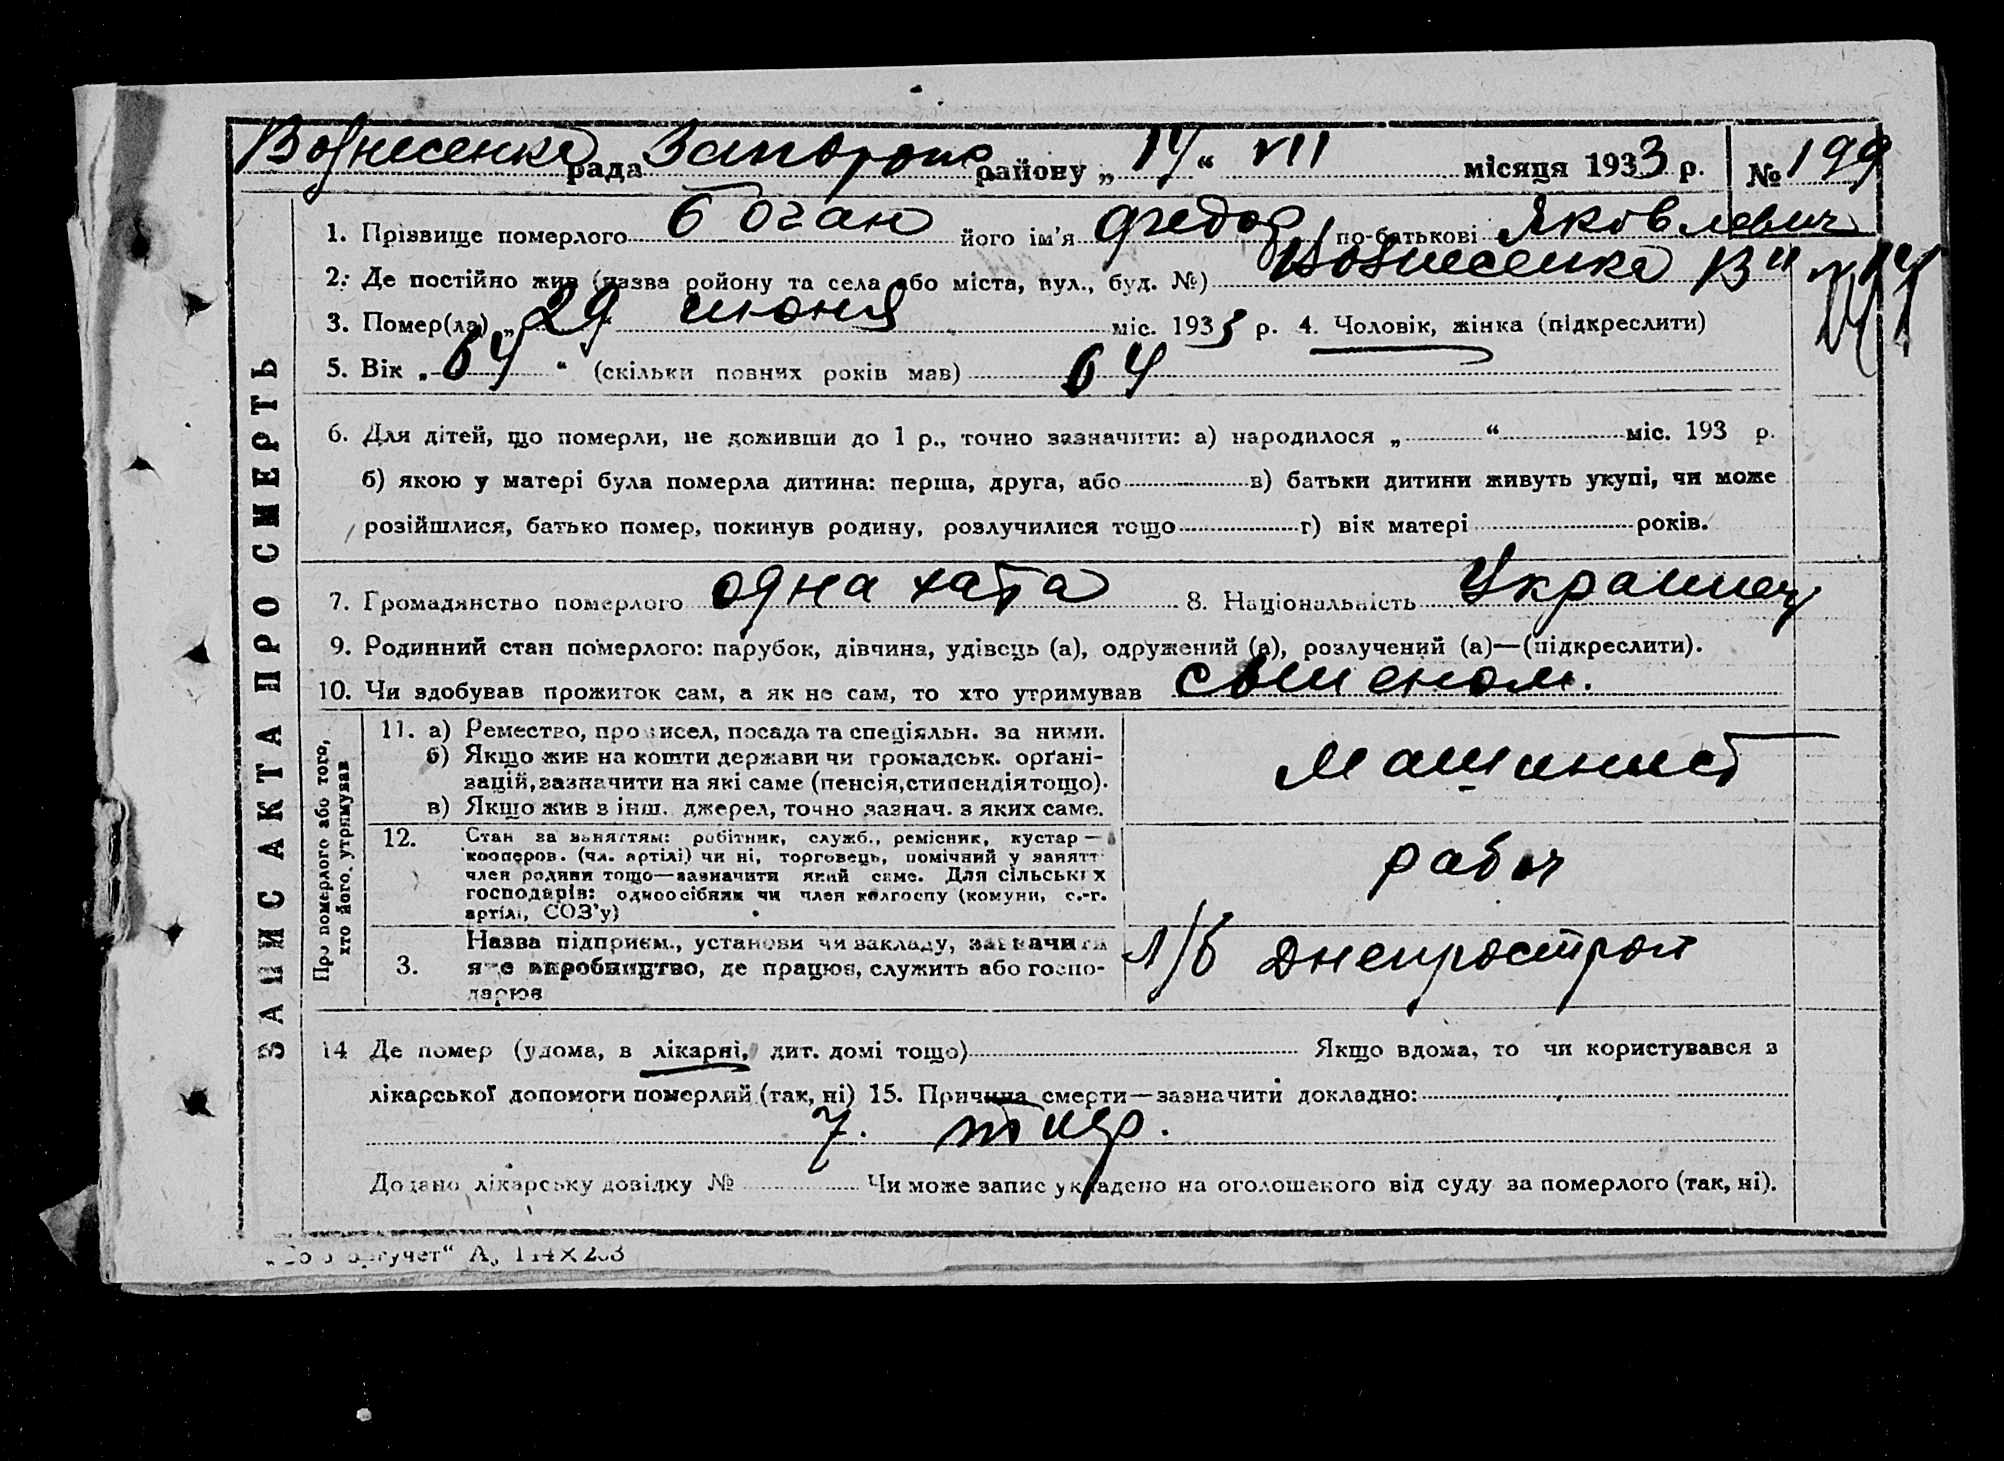 Вознесенка рада Запорожс району „ 14 “ VII місяця 1933 р. № 199
1. Прізвище померлого Боган його ім'я Федор по-батькові Яковлевич
2. Де постійно жив (назва ройону та села або міста, вул., буд. №) Вознесенка
3. Помер(ла) „ 29 “ июня міс. 1933 р. 4. Чоловік, жінка (підкреслити)
5. Вік „ 64 “ (скільки повних років мав) 64
6. Для дітей, що померли, не доживши до 1 р., точно зазначити: а) народилося „ “ міс. 193 р.
б) якою у матері була померла дитина: перша, друга, або в) батьки дитини живуть укупі, чи може
розійшлися, батько помер, покинув родину, розлучилися тощо г) вік матері років.
7. Громадянство померлого одна хата 8. Національність Украинец
9. Родинний стан померлого: парубок, дівчина, удівець (а), одружений (а), розлучений (а)—(підкреслити).
10. Чи здобував прожиток сам, а як не сам, то хто утримував с сыном.
Про померлого або того, хто його утримував
11. а) Ремество, промисел, посада та спеціяльн. за ними.
б) Якщо жив на кошти держави чи громадськ. орґані-
зацій, зазначити на які саме (пенсія, стипендія тощо).
в) Якщо жив з інш. джерел, точно зазнач. з яких саме.
машинист
12. Стан за заняттям: робітник, служб., ремісник, кустар—
кооперов. (чл. артілі) чи ні, торговець, помічний у занятт
член родини тощо—зазначити який саме. Для сільських
господарів: одноосібник чи член колгоспу (комуни, с.-г.
артілі, СОЗ'у)
рабоч
3. Назва підприєм., установи чи закладу, зазначити
яке виробництво, де працює, служить або госпо-
дарює
Л/б Днепрострой
14 Де помер (удома, в лікарні, дит. домі тощо) Якщо вдома, то чи користувався з
лікарської допомоги померлий (так, ні) 15. Причина смерти—зазначити докладно:
7. тиф.
Додано лікарську довідку № Чи може запис укладено на оголошеного від суду за померлого (так, ні).
ЗАПИС АКТА ПРО СМЕРТЬ